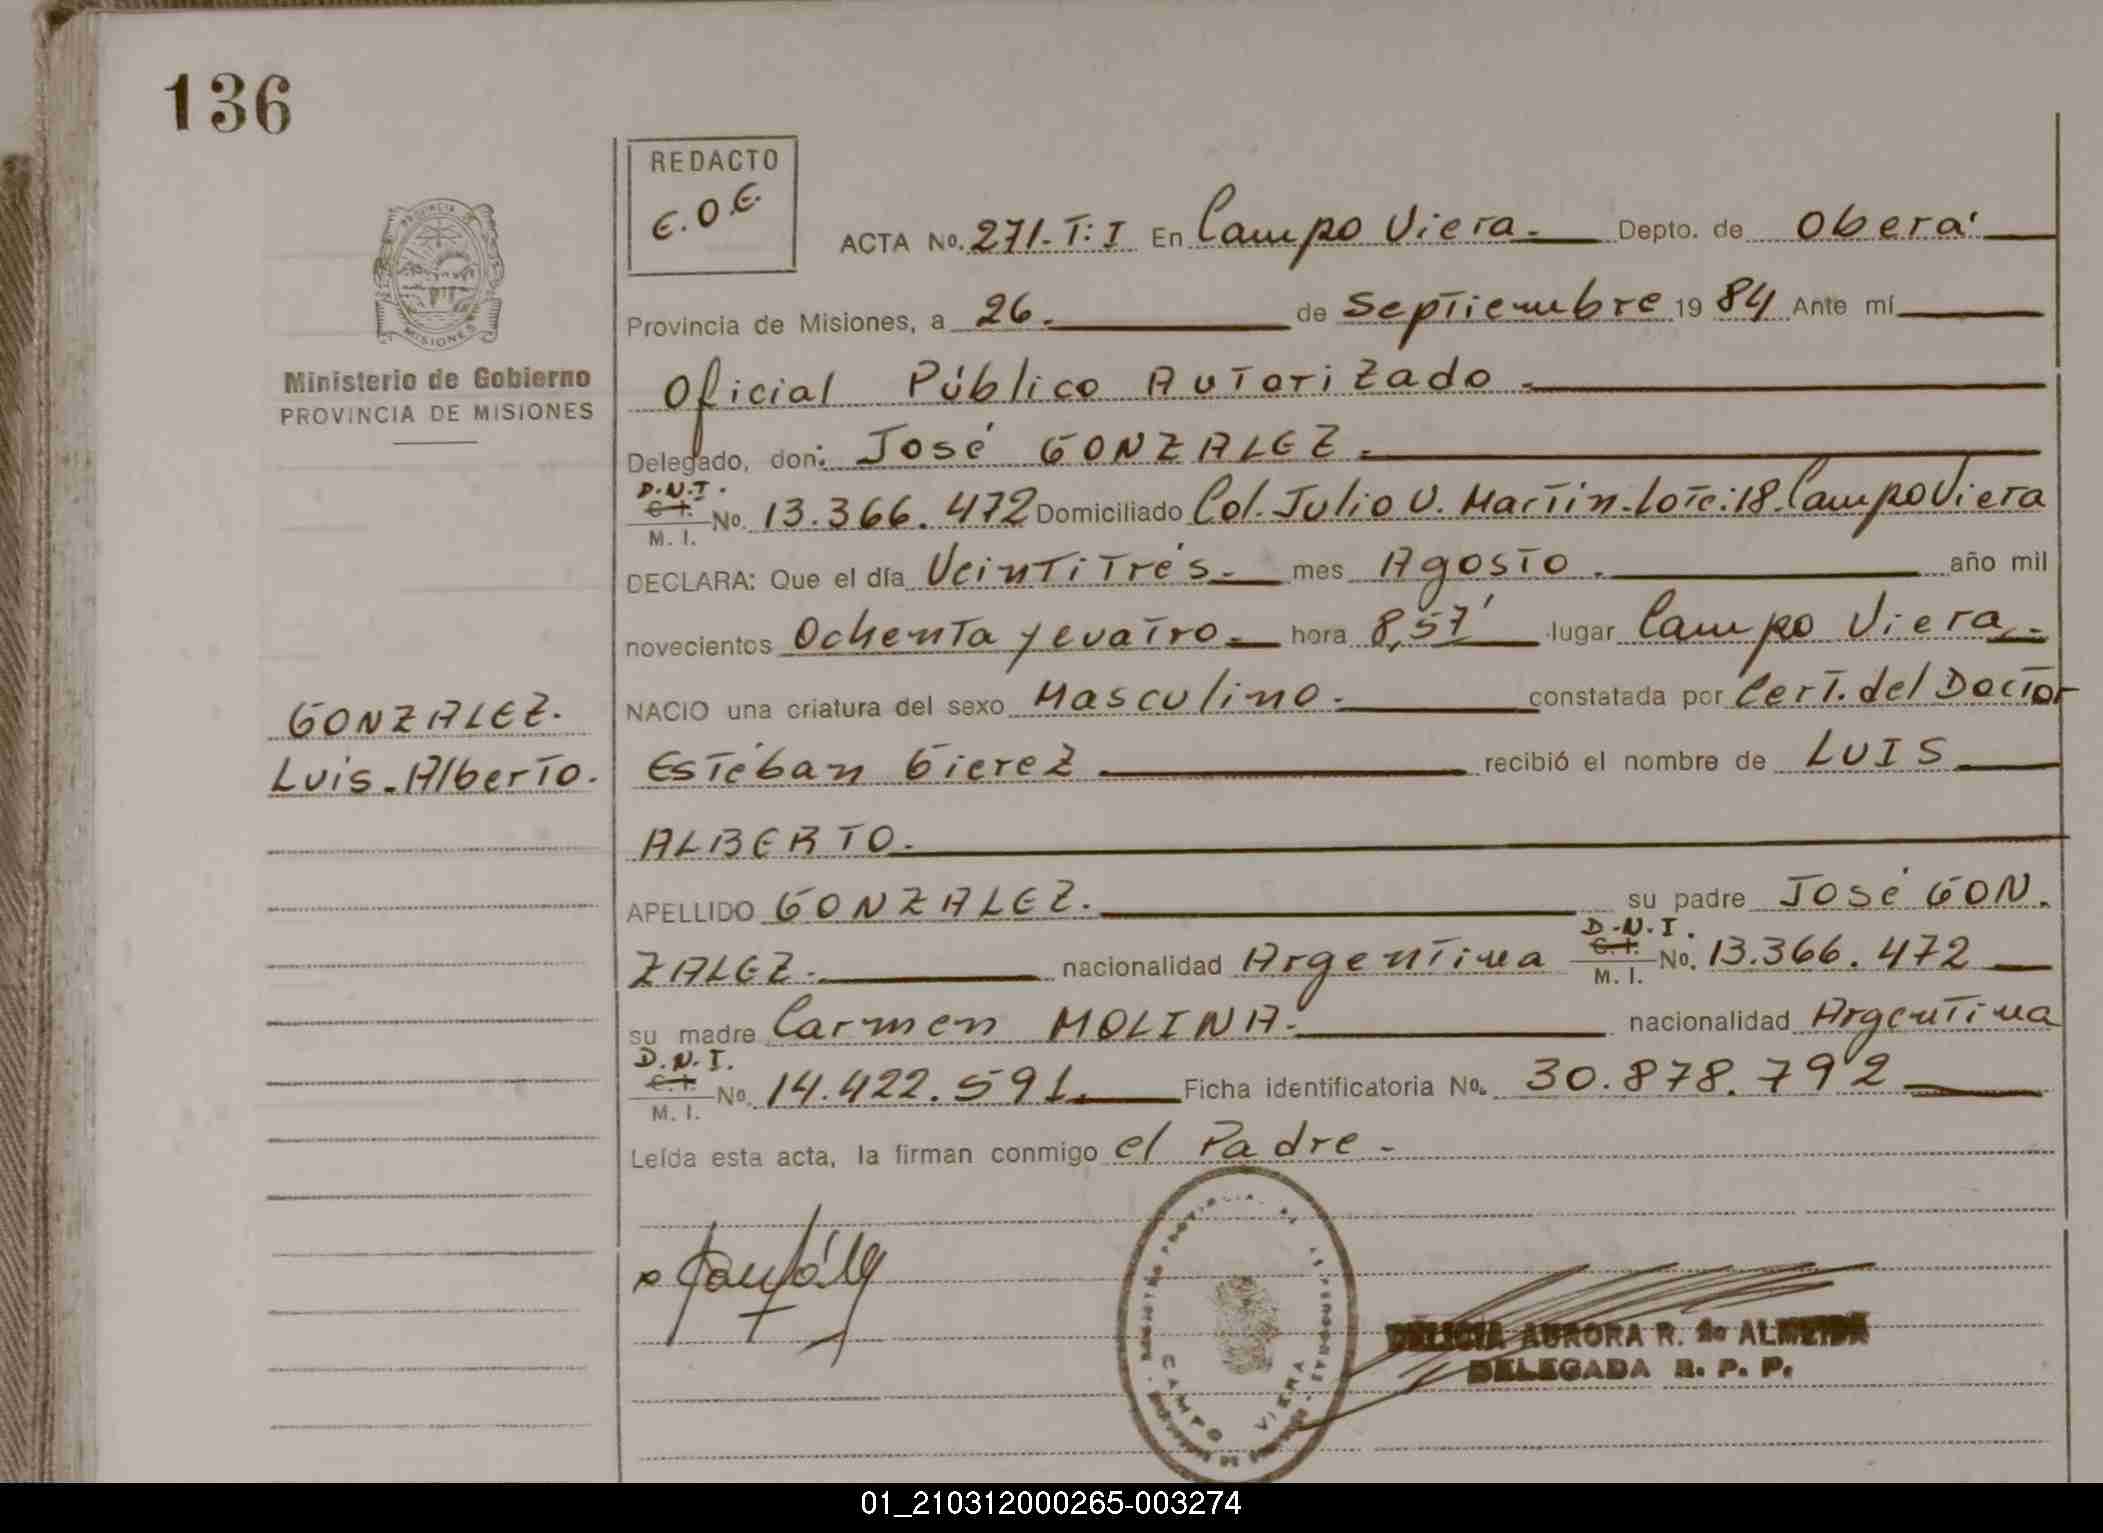 136
REDACTO
E.O.E.
ACTA No. 271-T:I En Campo Viera.- Depto. de Oberá
MISIONES
Provincia de Misiones, a 26.- de Septiembre 1984 Ante mí
Ministerio de Gobierno
PROVINCIA DE MISIONES
Oficial Público Autorizado.-
Delegado, don: José GONZALEZ.-
D.N.I.
C.I.
M. I. No. 13.366.472 Domiciliado Col. Julio U. Martin-Lote:18-Campo Viera
DECLARA: Que el día Veintitrés.- mes Agosto.- año mil
novecientos Ochenta y cuatro.- hora 8,57' lugar Campo Viera.-
NACIO una criatura del sexo Masculino.- constatada por Cert. del Doctor
GONZALEZ.
Luis-Alberto.
Estéban Gierez recibió el nombre de LUIS
ALBERTO.-
APELLIDO GONZALEZ.- su padre JOSÉ GON.
ZALEZ.- nacionalidad Argentina D.N.I. C.I. M. I. No. 13.366.472
su madre Carmen MOLINA.- nacionalidad Argentina
D.N.I.
C.I.
M. I. No. 14.422.591.- Ficha identificatoria No. 30.878.792
Leída esta acta, la firman conmigo el Padre-
CAMPO VIERA
DELICIA AURORA R. de ALMEIDA
DELEGADA R. P. P.
01_210312000265-003274